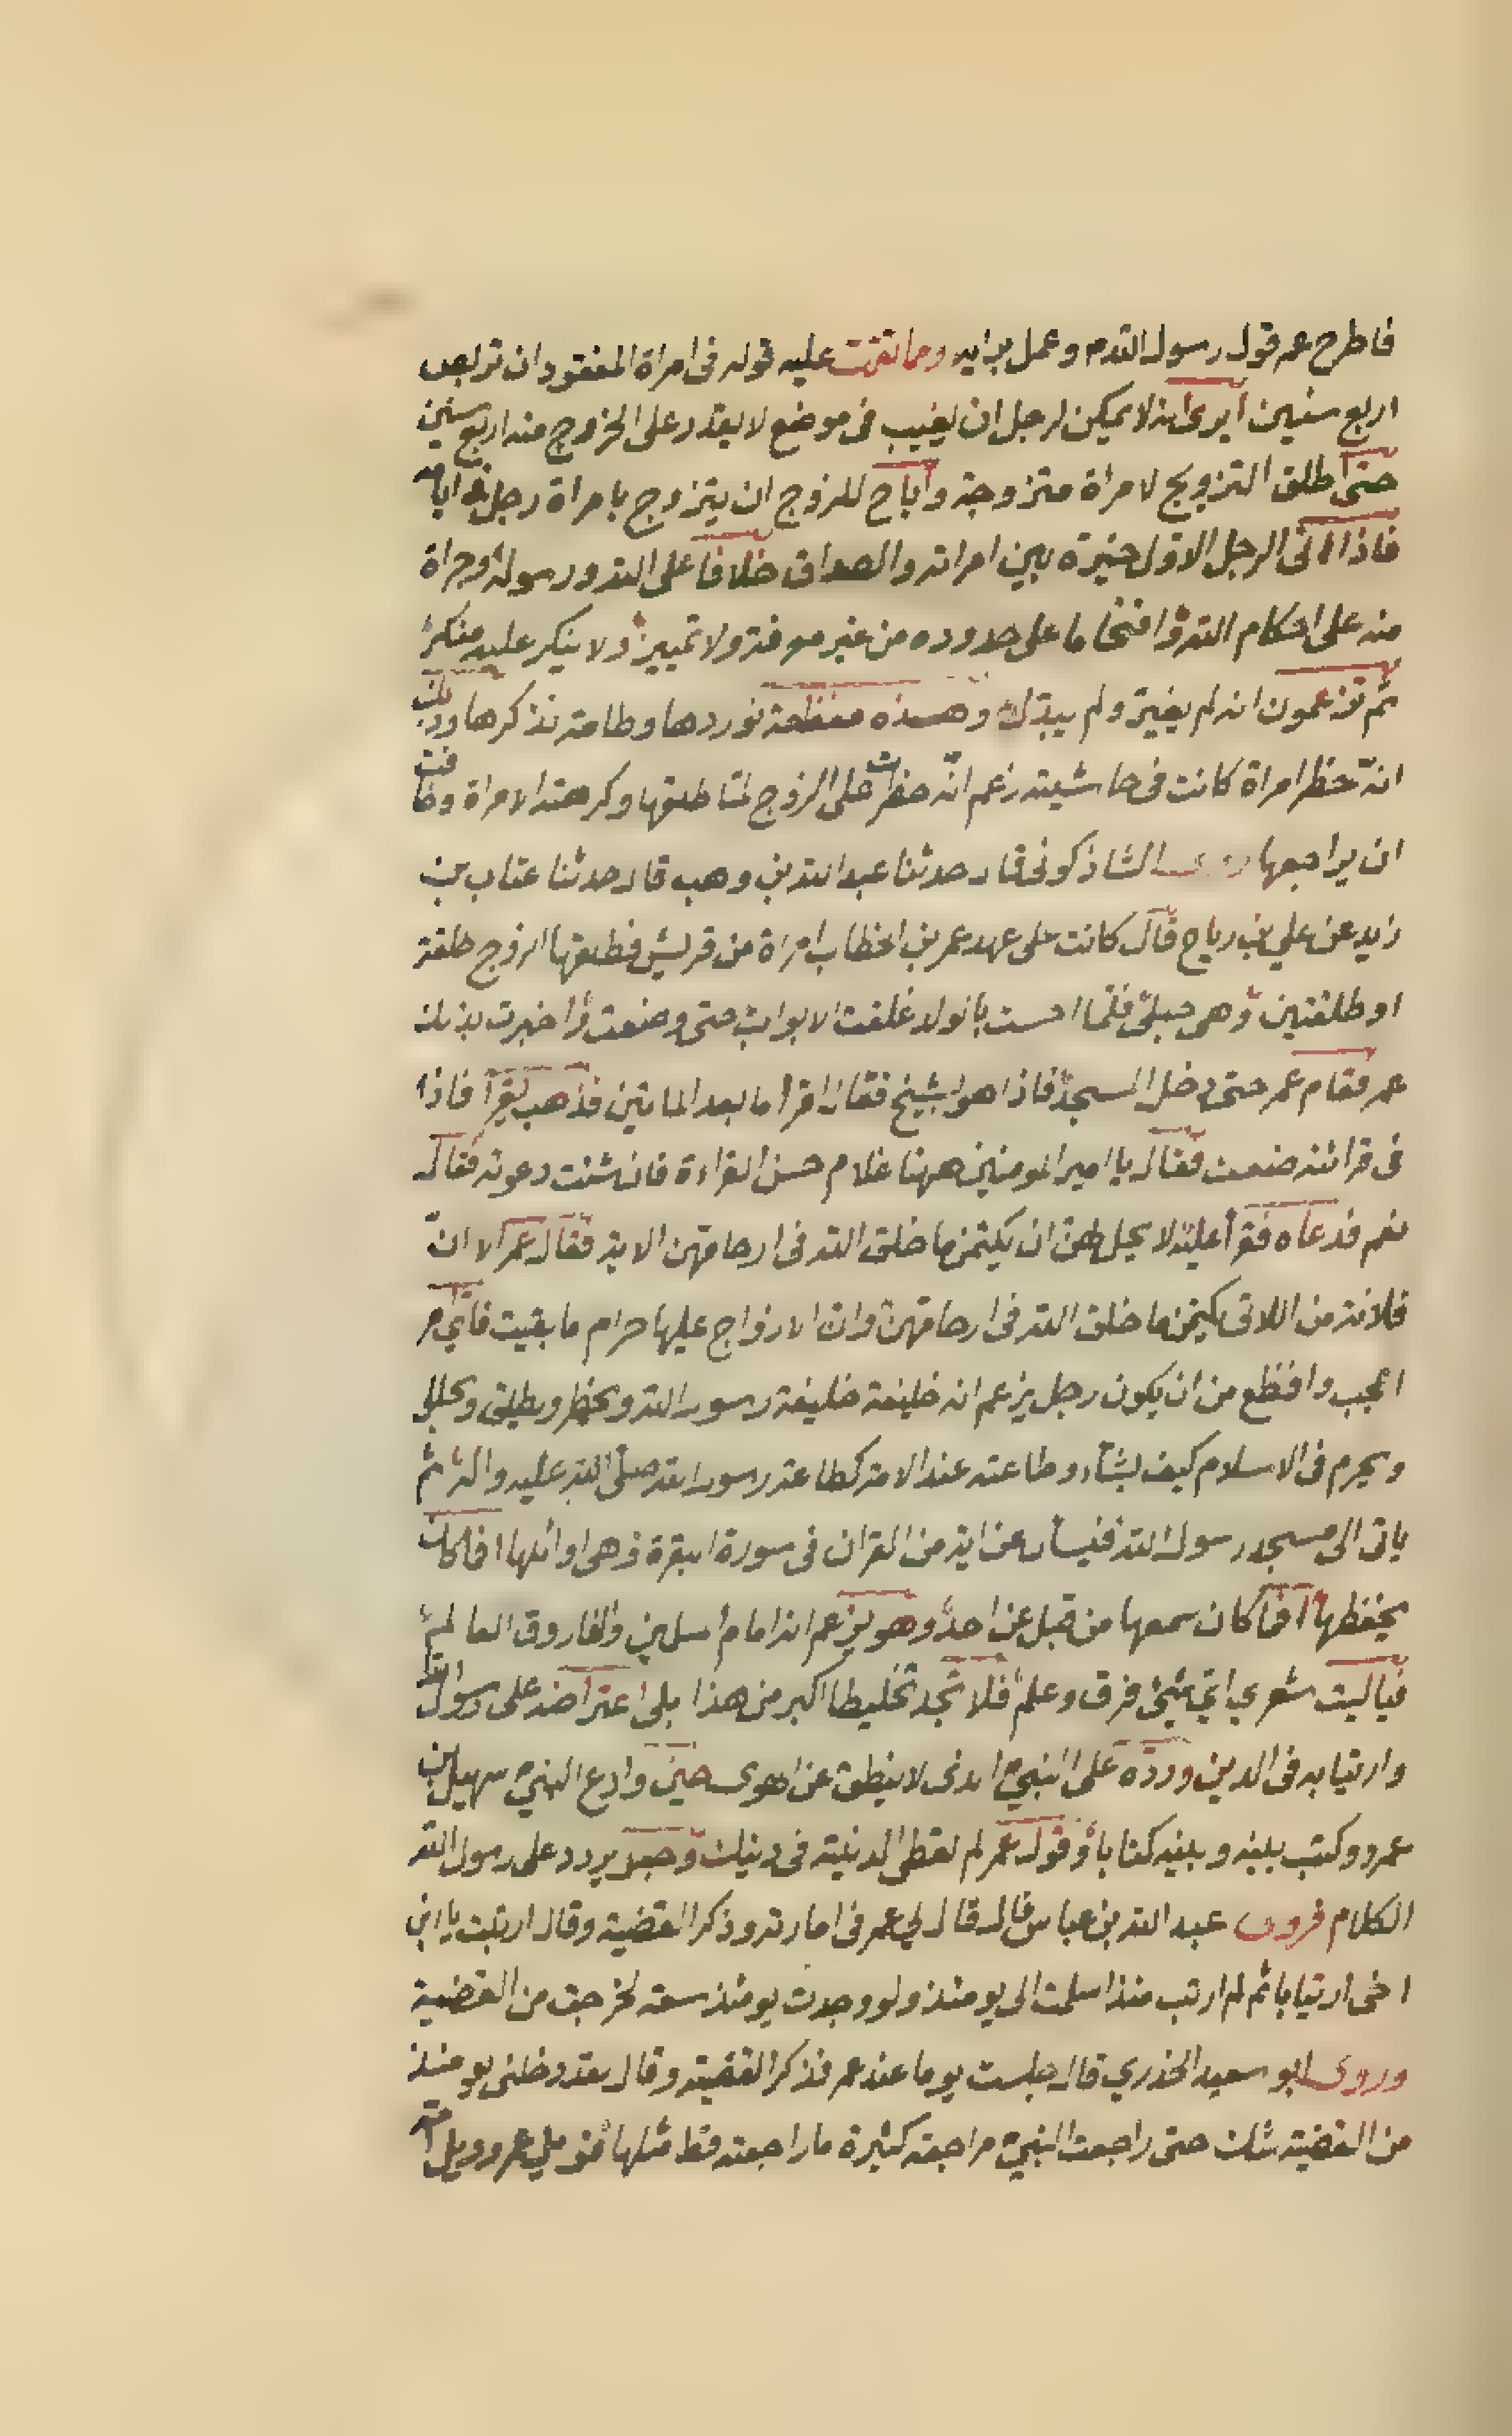 فاطرح عمر قول رسول الله م وعمل برايه ومما نقمت عليه قوله فى امراة المفقود ان تربص
اربع سنين أيرى انه لا يمكن لرجل ان يغيب فى موضع لا يقدر على الخروج منه اربع سنين
حتى اطلق التزويج لامراة متزوجة وأباح للزوج ان يتزوج بامراة رجل
فاذا اتى الرجل الاول خيره بين امراته والصداق خلافا على الله ورسوله وجراة
منه على احكام الله واقتحاما على حدوده من غير معرفة ولا تمييز ولا ينكر عليه منكر
ثم تزعمون انه لم يغير ولم يبدل وهذه مفظعة نوردها وطامة نذكرها وذلك
انه حظر امراة كانت فى حاشيته زعم انه حظرت على الزوج لما طلقها وكرهته الامراة وخافت
ان يراجعها روى الشاذكونى قال حدثنا عبد الله بن وهب قال حدثنا عتاب بن
زيد عن علي بن رياح قال كانت على عهد عمر بن الخطاب امراة من قريش فطلقها الزوج طلقة
او طلقتين وهى حبلى فلما احست بالولد غلقت الابواب حتى وضعت وأخبرت بذلك
عمر فقام عمر حتى دخل المسجد فاذا هو بشيخ فقال اقرأ ما بعد المايتين فذهب ليقرأ فاذا
فى قرائته ضعف فقال يا امير المومنين ههنا غلام حسن القراءة فان شئت دعوته فقال
نعم فدعاه فقرأ عليه لا يحل لهن ان يكتمن ما خلق الله فى ارحامهن الاية فقال عمر الا ان
فلانة من اللاتى يكتمن ما خلق الله فى ارحامهن وان الازواج عليها حرام ما بقيت فأي امر
اعجب وافظع من ان يكون رجل يزعم انه خليفة خليفة رسول الله ويحظر ويطلق ويحلل
ويحرم فى الاسلام كيف يشاء وطاعته عند الامة كطاعة رسول الله صلى الله عليه واله ثم
ياتى الى مسجد رسول الله فيسأل عن اية من القران فى سورة البقرة وهى اوائلها افما كان
يحفظها أفما كان سمعها من قبل عن احد وهو يزعم انه امام المسلمين والفاروق العالم
فياليت شعري اي شيئ فرق وعلم فلا تجد تخليطا اكبر من هذا بلى اعتراضه على رسول الله
وارتيابه فى الدين ورده على النبي الذى لا ينطق عن الهوى حين وادع النبي سهيل بن
عمرو وكتب بينه وبينه كتابا وقول عمر لم نعطى الدنية فى دينك وجعل يردد على رسول الله
الكلام فروى عبد الله بن عباس قال قال لي عمر فى امارته وذكر القضية وقال ارتبت يا ابن
اخى ارتيابا ثم لم ارتب منذ اسلمت الى يومئذ ولو وجدت يومئذ سعة لخرجت من القضية
وروى ابو سعيد الخدري قال جلست يوما عند عمر فذكر القضية وقال لقد دخلنى يومئذ
من القضية شك حتى راجعت النبي مراجعة كثيرة ما راجعته قط مثلها